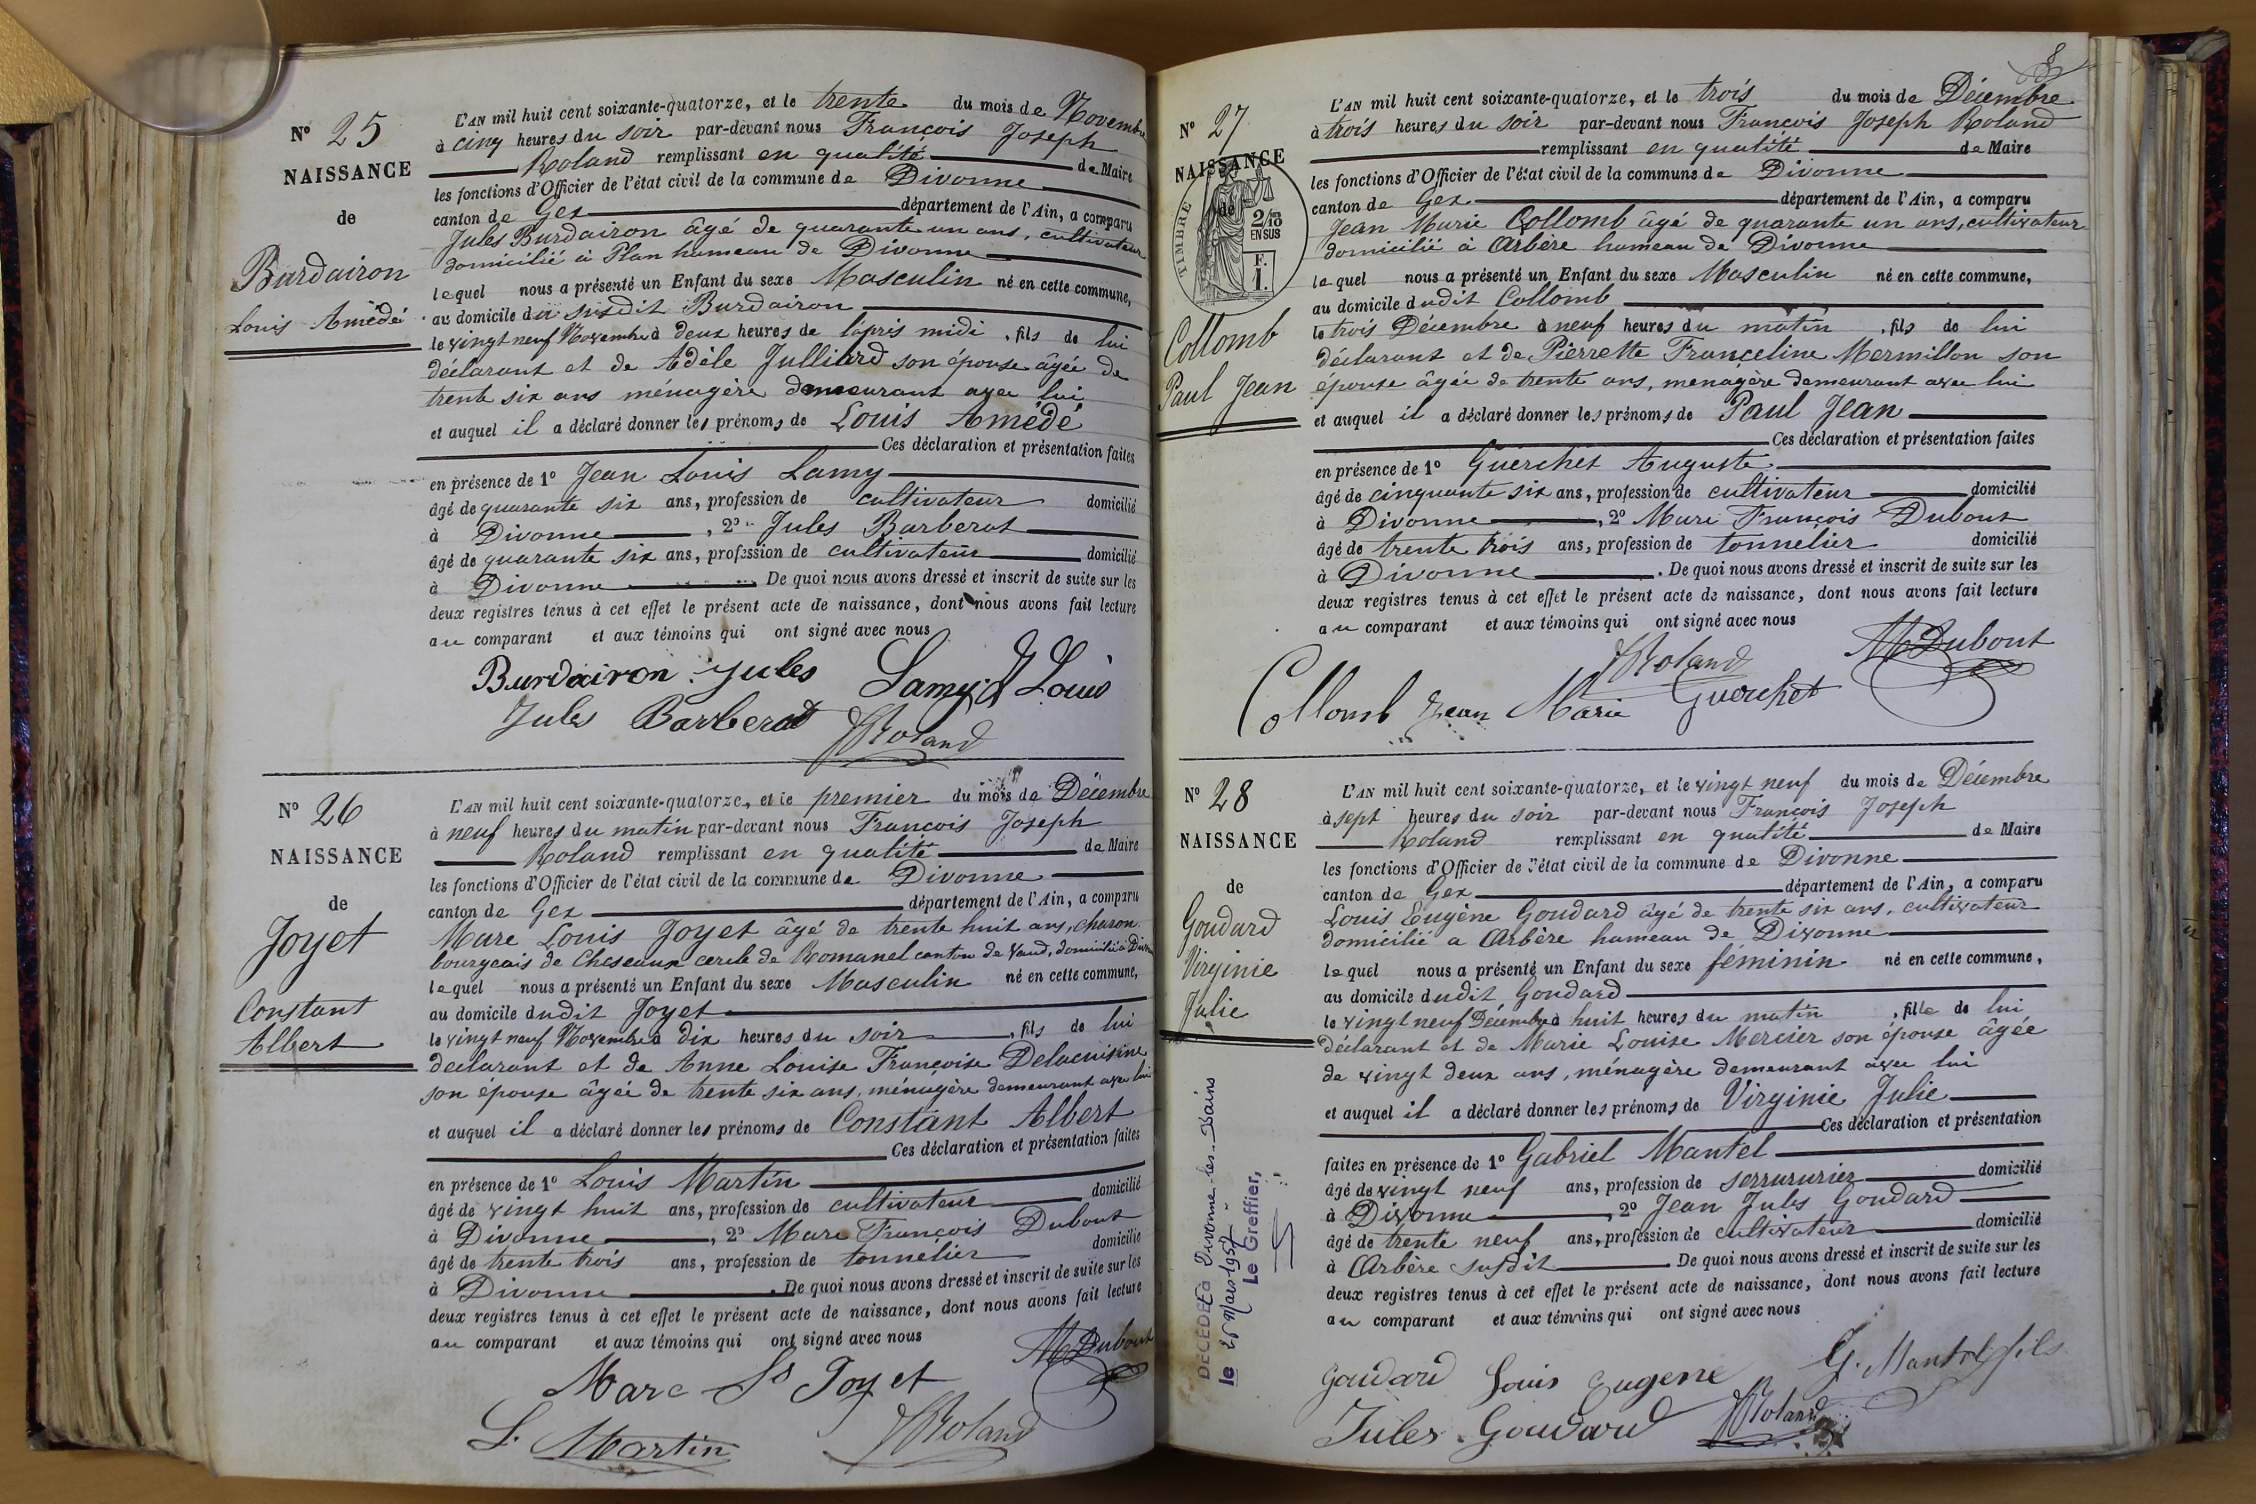 N° 25
NAISSANCE
de
Burdairon
Louis Amédé
L'AN mil huit cent soixante-quatorze, et le trente du mois de Novembre
à cinq heures du soir par-devant nous François Joseph
Roland remplissant en qualité de Maire
les fonctions d'Officier de l'état civil de la commune de Divonne
canton de Gex département de l'Ain, a comparu
Jules Burdairon âgé de quarante un ans, cultivateur
domicilié à Plan hameau de Divonne
lequel nous a présenté un Enfant du sexe Masculin né en cette commune,
au domicile du susdit Burdairon
le vingt neuf Novembre à deux heures de l'apris midi, fils de lui
déclarant et de Adèle Julliard son épouse âgée de
trente six ans ménagère demeurant avec lui
et auquel il a déclaré donner les prénoms de Louis Amédé
Ces déclaration et présentation faites
en présence de 1° Jean Louis Lamy
âgé de quarante six ans, profession de cultivateur domicilié
à Divonne, 2° Jules Barberat
âgé de quarante six ans, profession de cultivateur domicilié
à Divonne. De quoi nous avons dressé et inscrit de suite sur les
deux registres tenus à cet effet le présent acte de naissance, dont nous avons fait lecture
au comparant et aux témoins qui ont signé avec nous
Burdairon Jules Lamy J Louis
Jules Barberat JRoland
N° 26
NAISSANCE
de
Joyet
Constant
Albert
L'AN mil huit cent soixante-quatorze, et le premier du mois de Décembre
à neuf heures du matin par-devant nous François Joseph
Roland remplissant en qualité de Maire
les fonctions d'Officier de l'état civil de la commune de Divonne
canton de Gex département de l'Ain, a comparu
Marc Louis Joyet âgé de trente huit ans, charon
bourgeais de Cheseaux cercle de Romanel canton de Vaud, domicilié à Divonne
lequel nous a présenté un Enfant du sexe Masculin né en cette commune,
au domicile dudit Joyet
le vingt neuf Novembre à dix heures du soir, fils de lui
declarant et de Anne Louise Françoise Delacuisine
son épouse âgée de trente six ans, ménagère demeurant avec lui
et auquel il a déclaré donner les prénoms de Constant Albert
Ces déclaration et présentation faites
en présence de 1° Louis Martin
âgé de vingt huit ans, profession de cultivateur domicilié
à Divonne, 2° Marc François Dubout
âgé de trente trois ans, profession de tonnelier domicilié
à Divonne. De quoi nous avons dressé et inscrit de suite sur les
deux registres tenus à cet effet le présent acte de naissance, dont nous avons fait lecture
au comparant et aux témoins qui ont signé avec nous
MDubout
Marc Ls Joyet
L. Martin JRoland
8
N° 27
NAISSANCE
de
TIMBRE
2/10
EN SUS
F.
1.
Collomb
Paul Jean
L'AN mil huit cent soixante-quatorze, et le trois du mois de Décembre
à trois heures du soir par-devant nous François Joseph Roland
remplissant en qualité de Maire
les fonctions d'Officier de l'état civil de la commune de Divonne
canton de Gex département de l'Ain, a comparu
Jean Marie Collomb âgé de quarante un ans, cultivateur
domicilié à Arbère hameau de Divonne
lequel nous a présenté un Enfant du sexe Masculin né en cette commune,
au domicile dudit Collomb
le trois Décembre à neuf heures du matin, fils de lui
déclarant et de Pierrette Françeline Mermillon son
épouse âgée de trente ans, menagère demeurant avec lui
et auquel il a déclaré donner les prénoms de Paul Jean
Ces déclaration et présentation faites
en présence de 1° Guerchet Auguste
âgé de cinquante six ans, profession de cultivateur domicilié
à Divonne, 2° Marc François Dubout
âgé de trente trois ans, profession de tonnelier domicilié
à Divonne. De quoi nous avons dressé et inscrit de suite sur les
deux registres tenus à cet effet le présent acte de naissance, dont nous avons fait lecture
au comparant et aux témoins qui ont signé avec nous
JRoland MDubout
Collomb Jean Marie Guerchet
N° 28
NAISSANCE
de
Goudard
Virginie
Julie
DÉCÉDÉE à Divonne-les-Bains
le 25 Mars 1957
Le Greffier,
L'AN mil huit cent soixante-quatorze, et le vingt neuf du mois de Décembre
à sept heures du soir par-devant nous François Joseph
Roland remplissant en qualité de Maire
les fonctions d'Officier de l'état civil de la commune de Divonne
canton de Gex département de l'Ain, a comparu
Louis Eugène Goudard âgé de trente six ans, cultivateur
domicilié a Arbère hameau de Divonne
lequel nous a présenté un Enfant du sexe féminin né en cette commune,
au domicile dudit Goudard
le vingt neuf Décembre à huit heures du matin, fille de lui
déclarant et de Marie Louise Mercier son épouse âgée
de vingt deux ans, ménagère demeurant avec lui
et auquel il a déclaré donner les prénoms de Virginie Julie
Ces déclaration et présentation
faites en présence de 1° Gabriel Mantel
âgé de vingt neuf ans, profession de serrururier domicilié
à Divonne, 2° Jean Jules Goudard
âgé de trente neuf ans, profession de cultivateur domicilié
à Arbère susdit. De quoi nous avons dressé et inscrit de suite sur les
deux registres tenus à cet effet le présent acte de naissance, dont nous avons fait lecture
au comparant et aux témoins qui ont signé avec nous
Goudard Louis Eugene G. Mantel fils
Jules Goudard JRoland